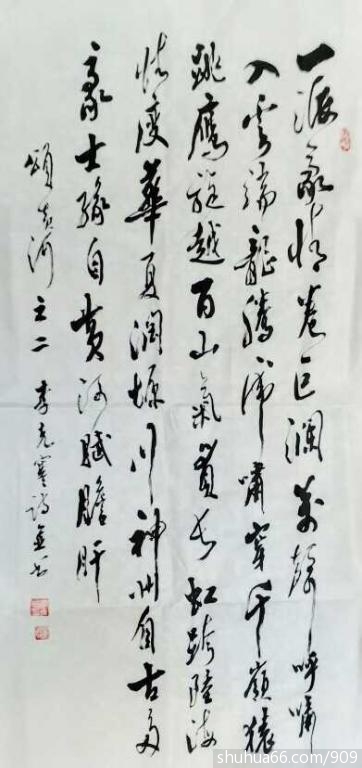 一派豪情卷巨瀾萬呼嘯
入雲端龍騰虎嘯穿千嶺猿
跳鷹旋越百山氣貫长虹跨陸海
情度華夏潤塬川神州自古多
豪士緣自黄河賦膽肝
頌黄河之二 李克寒詩並书
shuhua66.com/909